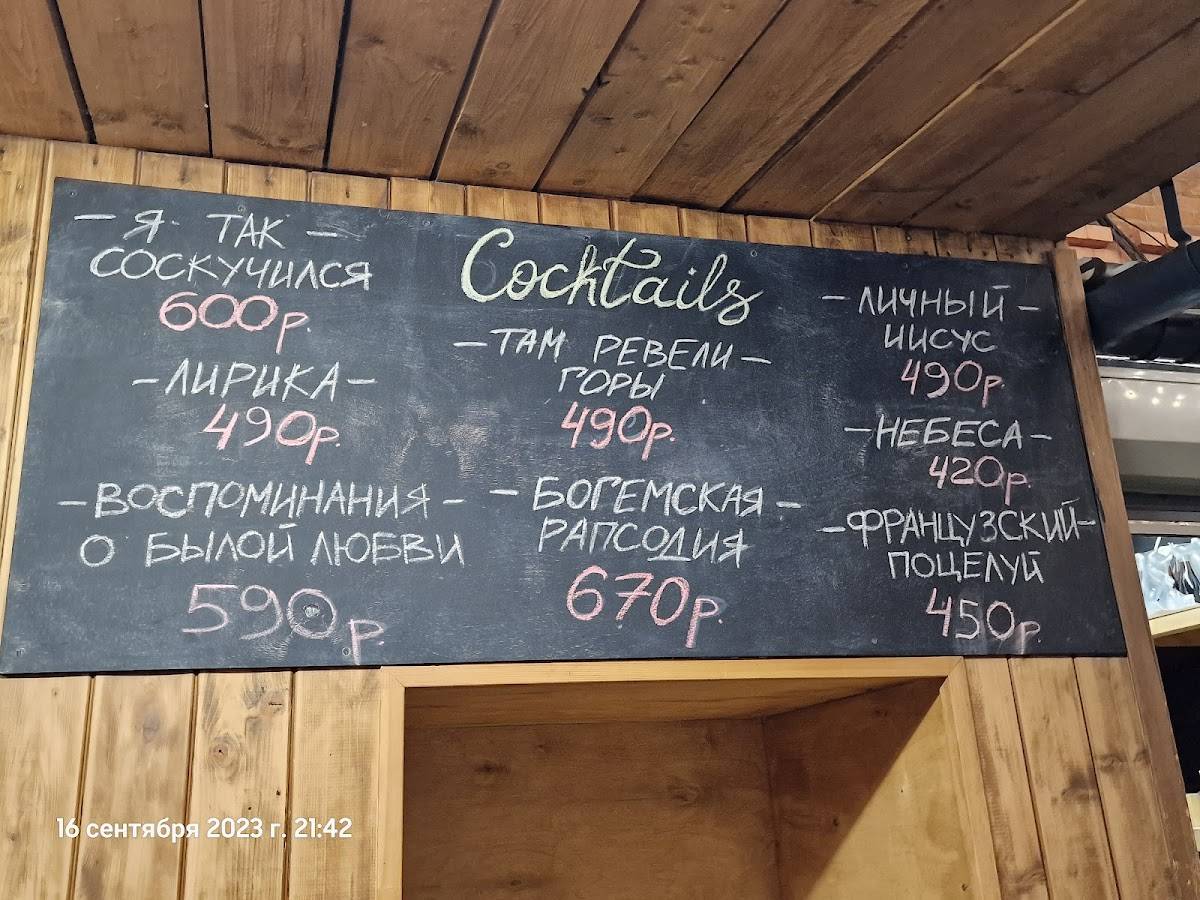 - Я - ТАК -
СОСКУЧИЛСЯ
600р.
- ЛИРИКА -
490р.
- ВОСПОМИНАНИЯ -
О БЫЛОЙ ЛЮБВИ
590р.
Cocktails
- ТАМ РЕВЕЛИ -
ГОРЫ
490р.
- БОГЕМСКАЯ -
РАПСОДИЯ
670р.
- ЛИЧНЫЙ -
ИИСУС
490р.
- НЕБЕСА -
420р.
- ФРАНЦУЗСКИЙ -
ПОЦЕЛУЙ
450р.
16 сентября 2023 г. 21:42